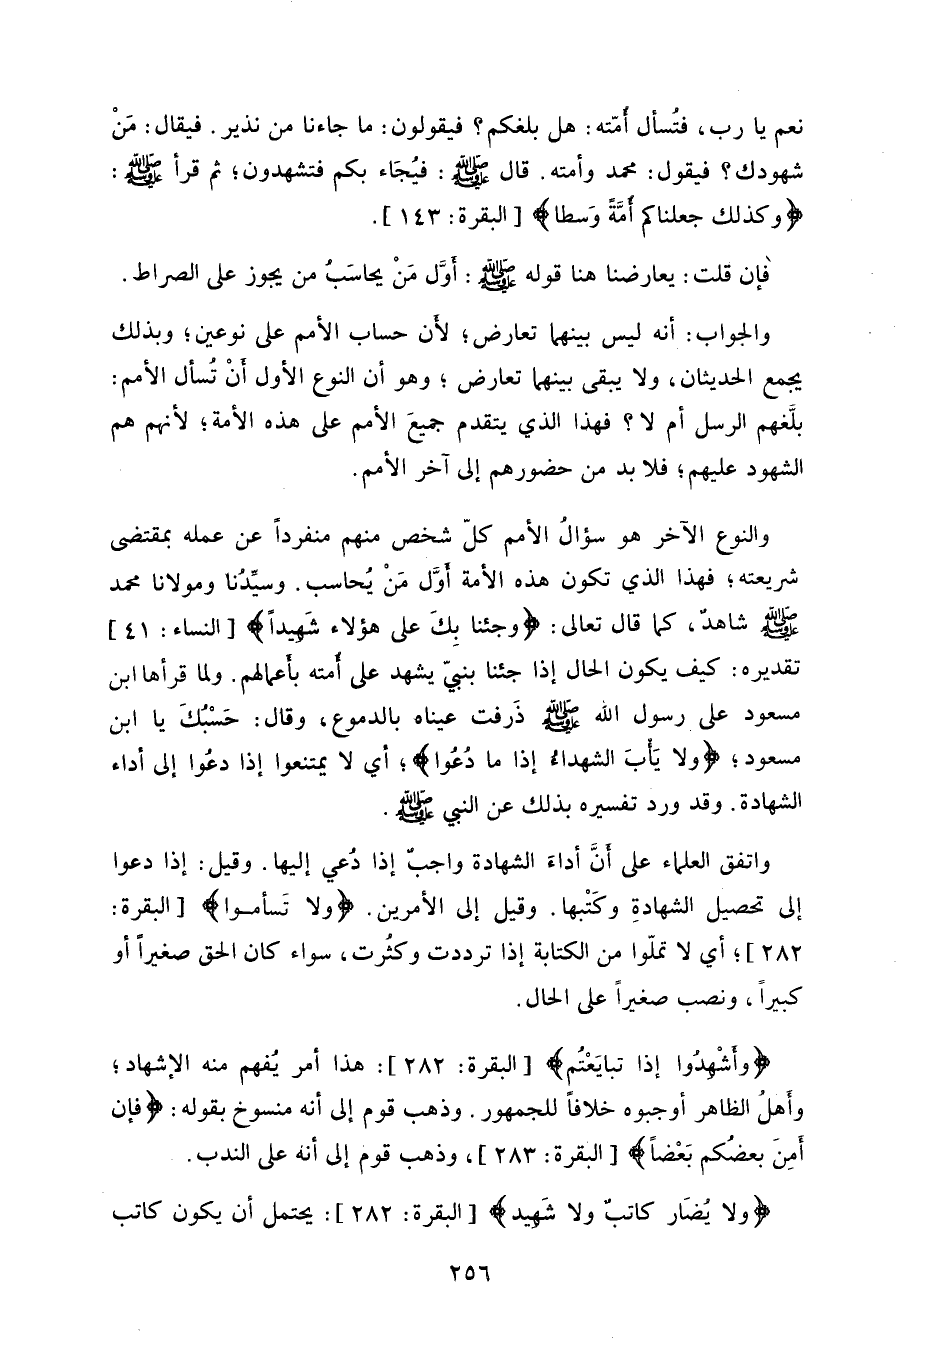 نعم يا رب، فتُسأل أُمّته: هل بلغكم؟ فيقولون: ما جاءنا من نذير. فيقال: مَنْ
شهودك؟ فيقول: محمد وأمته. قال ﷺ: فيُجَاء بكم فتشهدون؛ ثم قرأ ﷺ:
﴿وكذلك جعلناكم أُمَّةً وَسطا﴾ [البقرة: ١٤٣].
فإن قلت: يعارضنا هنا قوله ﷺ: أَوَّل مَنْ يحاسَبُ من يجوز على الصراط.
والجواب: أنه ليس بينهما تعارض؛ لأن حساب الأمم على نوعين؛ وبذلك
يجمع الحديثان، ولا يبقى بينهما تعارض؛ وهو أن النوع الأول أَنْ تُسأل الأمم:
بلَّغهم الرسل أم لا؟ فهذا الذي يتقدم جميعَ الأمم على هذه الأمة؛ لأنهم هم
الشهود عليهم؛ فلا بد من حضورهم إلى آخر الأمم.
والنوع الآخر هو سؤالُ الأمم كلّ شخص منهم منفرداً عن عمله بمقتضى
شريعته؛ فهذا الذي تكون هذه الأمة أَوَّل مَنْ يُحاسب. وسيِّدُنا ومولانا محمد
ﷺ شاهدٌ، كما قال تعالى: ﴿وجئنا بِكَ على هؤلاء شَهِيداً﴾ [النساء: ٤١]
تقديره: كيف يكون الحال إذا جئنا بنبيّ يشهد على أُمته بأعمالهم. ولما قرأها ابن
مسعود على رسول الله ﷺ ذَرفت عيناه بالدموع، وقال: حَسْبُكَ يا ابن
مسعود؛ ﴿ولا يَأْبَ الشهداءُ إذا ما دُعُوا﴾؛ أي لا يمتنعوا إذا دعُوا إلى أداء
الشهادة. وقد ورد تفسيره بذلك عن النبي ﷺ.
واتفق العلماء على أَنَّ أداءَ الشهادة واجبٌ إذا دُعي إليها. وقيل: إذا دعوا
إلى تحصيل الشهادةِ وكَتْبها. وقيل إلى الأمرين. ﴿ولا تَسأمـوا﴾ [البقرة:
٢٨٢]؛ أي لا تملّوا من الكتابة إذا ترددت وكثُرت، سواء كان الحق صغيراً أو
كبيراً، ونصب صغيراً على الحال.
﴿وأَشْهِدُوا إذا تبايَعْتُم﴾ [البقرة: ٢٨٢]: هذا أمر يُفهم منه الإشهاد؛
وأَهلُ الظاهر أوجبوه خلافاً للجمهور. وذهب قوم إلى أنه منسوخ بقوله: ﴿فإن
أَمِنَ بعضُكم بَعْضاً﴾ [البقرة: ٢٨٣]، وذهب قوم إلى أنه على الندب.
﴿ولا يُضَار كاتبٌ ولا شَهِيد﴾ [البقرة: ٢٨٢]: يحتمل أن يكون كاتب
٢٥٦